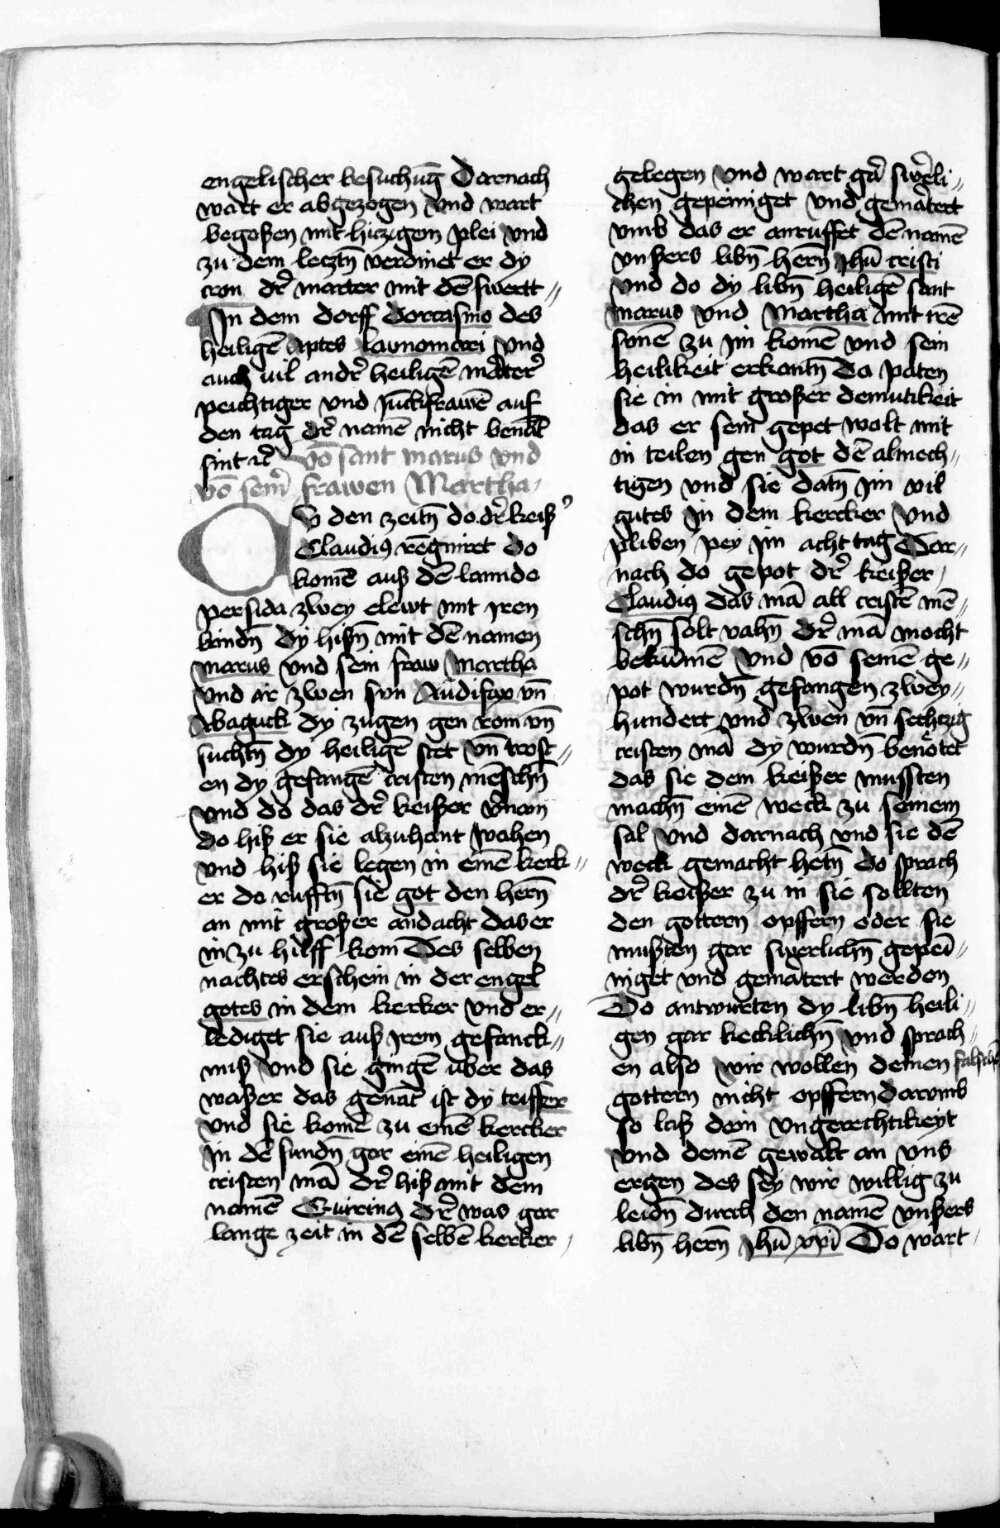 engelischer besuchu͂g Darnach
wart er abgezogen Vnd wart
begoßen mit hiczigem plei Vnd
zu dem leczt͂n verdinet er dy
cron dr̃ marter mit de͂ swertt〃
In dem dorff dorcasino des
heilige͂ Aptes launomari Vnd
auch uil andr̃ heilige͂ mȧrterr̃
peichtiger vnd Ju͂ckfrawe͂ auf
den tag dr̃ name͂ nicht bena͂t
sint
vo͂ sant marus vnd
vo͂ sein̄ frawen Martha
Cʒu den zeit͂n do dr̃ keiß
Claudiꝯ regniret do
kome͂ auß de͂ lannde
persida zwey elewt mit iren
kindn͂ dy hiß͂n mit de͂ namen
marus Vnd sein fraw Martha
Vnd ir zwen sun Audifax vn͂
Abaguck dy zugen gen rom vn͂
sucht͂n dy heilige͂ stet vn͂ trost〃
en dy gefange͂ cristen me͂sch͂n
Vnd do das dr̃ keißer v̓nam
do hiß er sie alzuhant vahen
vnd hiß sie legen in eine͂ kerk〃
er do rufft͂n sie got den her͂n
an mit großer andacht das er
in zu hilff kom Des selben
nachtes erschein in der engel
gotes in dem kerker Vnd er〃
lediget sie auß irem gefanck〃
niß Vnd sie ginge͂ uber das
waßer das gena͂t ist dy teiffer
Vnd sie kome͂ zu eine͂ kercker
In de͂ fundn͂ gar eine͂ heiligen
cristen ma͂ dr̃ hiß mit dem
name͂ Quirinꝯ dr̃ was gar
lange zeit in de͂ selbe͂ kerker
gelegen Vnd wart gar̃ swerli〃
chen gepeiniget vnd gemȧrtert
vmb das er anruffet de͂ name͂
vnßers lib͂n her͂n Jhu͂ cristi
Vnd do dy lib͂n heilige͂ sant
marus Vnd Martha mit ire͂
sone͂ zu im kome͂ vnd sein
heilikeit erkant͂n Da paten
sie in mit großer demutikeit
das er sein gepet wolt mit
in teilen gen got de͂ almech〃
tigen vnd sie dat͂n im vil
gutes In dem kercker Vnd
pliben pey im acht tag Dar〃
nach do gepot dr̃ keißer
Claudiꝯ das ma͂ all criste͂ me͂〃
sch͂n solt vah͂n dr̃ ma͂ mocht
beku͂me͂ Vnd vo͂ seine͂ ge〃
pot wurd͂n gefangen zwey〃
hundert vnd zwen vn͂ sechczig
cristen ma͂ dy wurd͂n benȯtet
das sie dem keißer mußten
mach͂n eine͂ weck zu seinem
sal Vnd darnach vnd sie de͂
weck gemacht het͂n do sprach
dr̃ keißer zu in sie sollten
den gottern opffern oder sie
mußten gar swerlich͂n gepei͂〃
niget vnd gemȧrtert werden
Do antwurten dy lib͂n heili〃
gen gar kecklich͂n Vnd sprach〃
en also wir wollen deinen falsche͂
gottern nicht opffern darvmb
so laß dein Vngerechtikeyt
Vnd deine͂ gewalt an vns
ergen des sey wir willig zu
leid͂n durch den name͂ vnßers
lib͂n her͂n Jhu͂ xpi͂ Do wart